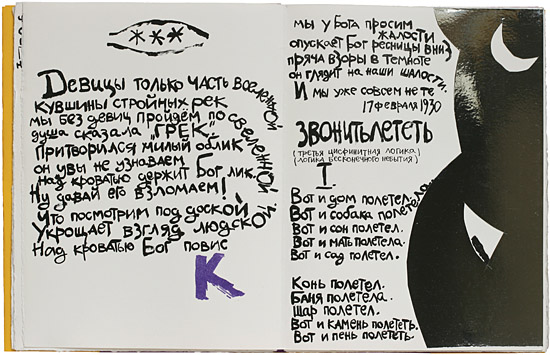 ***
Девицы только часть вселенной
кувшины стройных рек
мы без девиц пройдём по вселенной
душа сказала "ГРЕК".
Притворился милый облик
он увы не узнаваем
Над кроватью держит Бог лик.
Ну давай его взломаем!
Что посмотрим под доской
Укрощает взгляд людской.
Над кроватью Бог повис
К
мы у Бога просим
жалости
опускает Бог ресницы вниз
пряча взоры в темноте
он глядит на наши шалости.
И мы уже совсем не те
17 февраля 1930
ЗВОНИТЬ ЛЕТЕТЬ
(третья цисфинитная логика)
(логика бесконечного небытия)
I.
Вот и дом полетел.
Вот и собака полетела.
Вот и сон полетел.
Вот и мать полетела.
Вот и сад полетел.
Конь полетел.
Баня полетела.
Шар полетел.
Вот и камень полететь.
Вот и пень полететь.